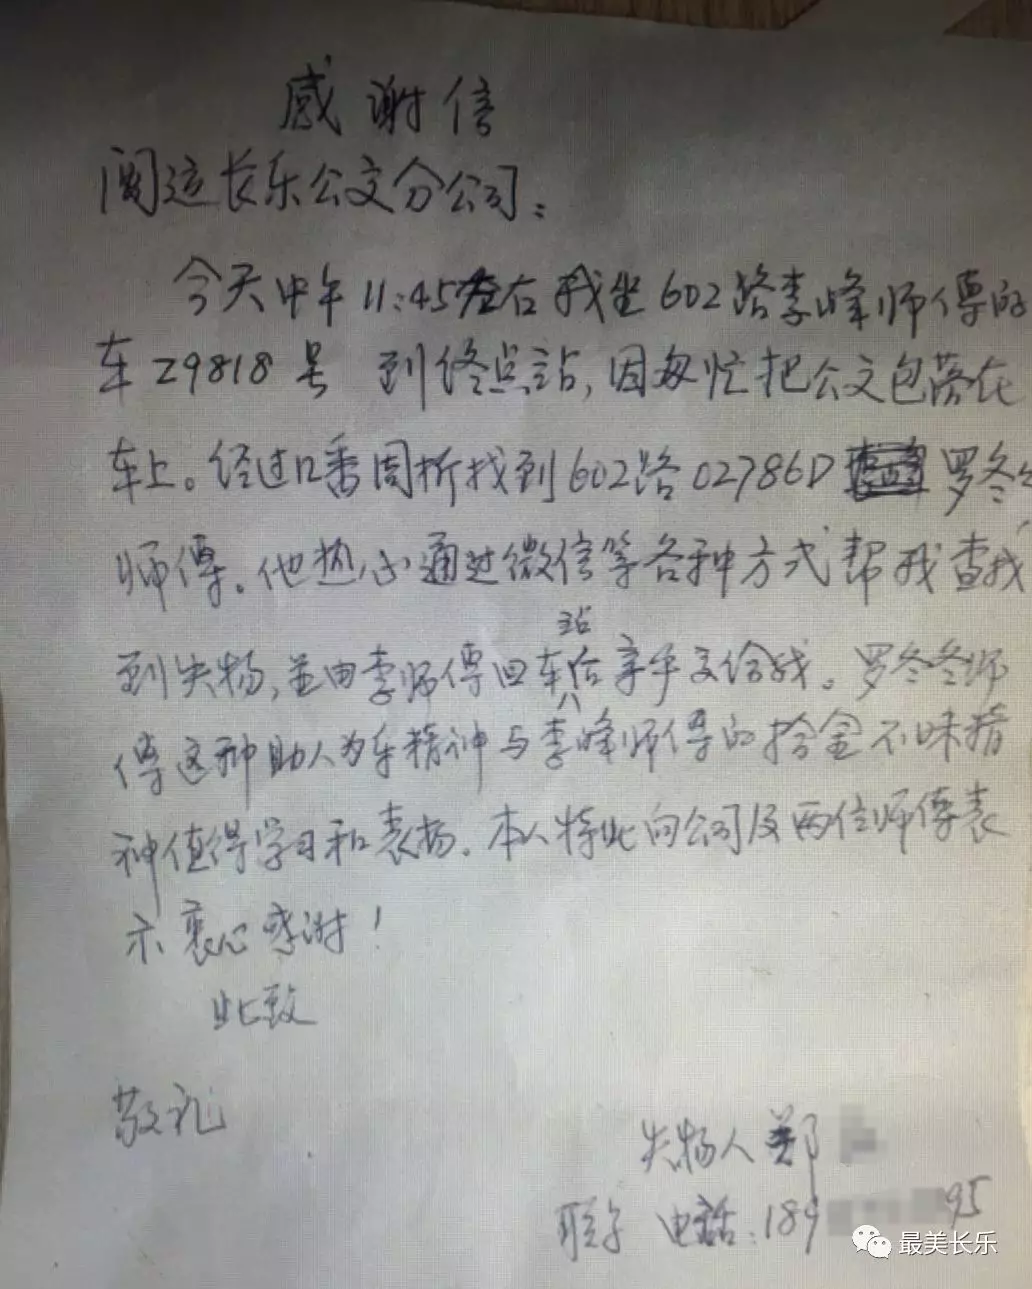 感谢信
闽运长乐公交分公司：
今天中午11:45左右我坐602路李峰师傅的
车29818号 到终点站，因匆忙把公文包落在
车上。经过几番周折找到602路02786D 罗冬冬
师傅。他热心通过微信等各种方式帮我查找
到失物，并由李师傅回车站后亲手交给我。罗冬冬师
傅这种助人为乐精神与李峰师傅的拾金不昧精
神值得学习和表扬。本人特此向公司及两位师傅表
示衷心感谢！
此致
敬礼
失物人 郑
联系电话：189 95
最美长乐